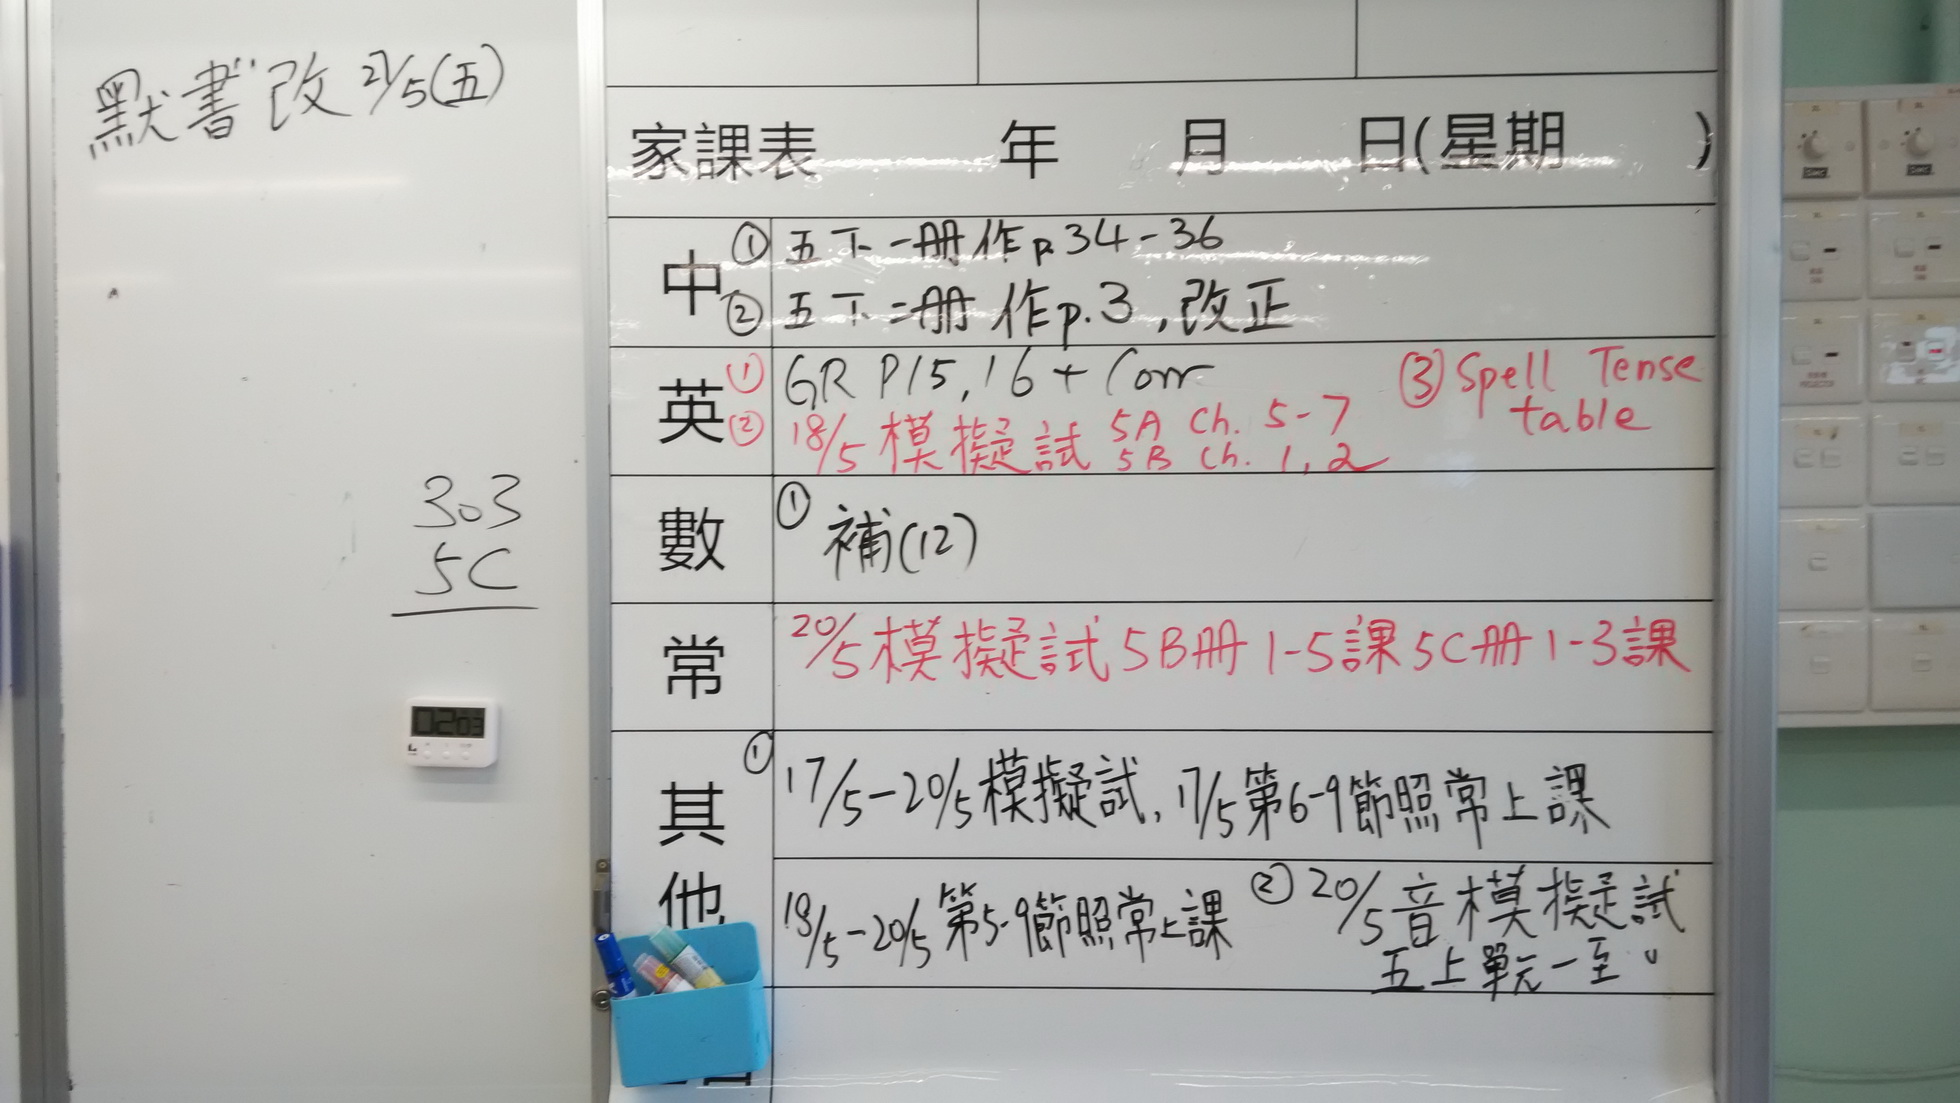 默書改 27/5(五)
303
5C
02 03
家課表 年 月 日(星期 )
中
① 五下一冊作p.34-36
② 五下二冊作p.3,改正
英
① GR P15,16+Corr
② 18/5 模擬試 5A Ch. 5-7
5B Ch. 1,2
③ Spell Tense
table
數
① 補(12)
常
20/5 模擬試 5B冊 1-5課 5C冊 1-3課
其他
① 17/5-20/5 模擬試, 17/5 第6-9節照常上課
18/5-20/5 第5-9節照常上課
② 20/5 音模擬試
五上單元一至